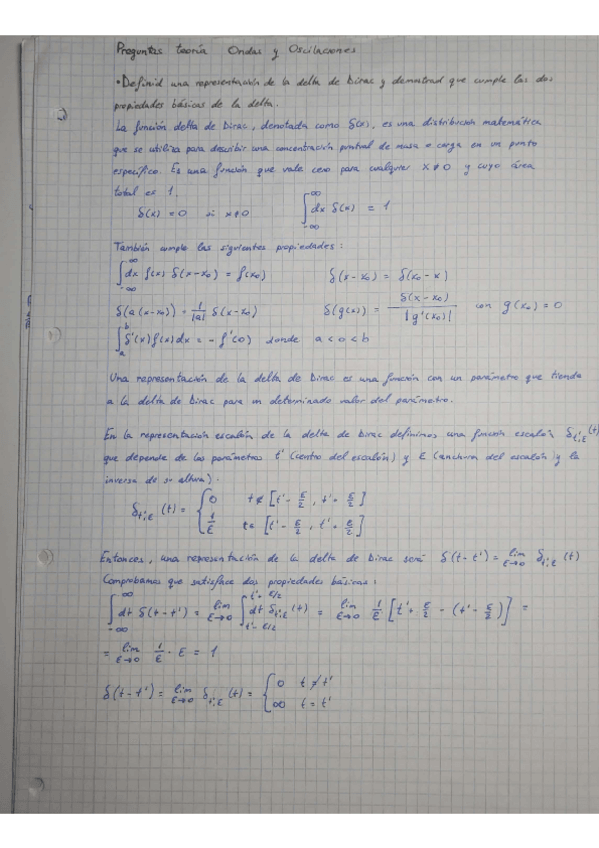 Preguntas teoría Ondas y Oscilaciones
• Definid una representación de la delta de Dirac y demostrad que cumple las dos
propiedades básicas de la delta.
La función delta de Dirac, denotada como δ(x), es una distribución matemática
que se utiliza para describir una concentración puntual de masa o carga en un punto
específico. Es una función que vale cero para cualquier x≠0 y cuyo área
total es 1.
δ(x) = 0 si x≠0 ∫_{-∞}^{∞} dx δ(x) = 1
También cumple las siguientes propiedades:
∫_{-∞}^{∞} dx f(x) δ(x-x₀) = f(x₀) δ(x-x₀) = δ(x₀-x)
δ(a(x-x₀)) = 1/|a| δ(x-x₀) δ(g(x)) = δ(x-x₀)/|g'(x₀)| con g(x₀) = 0
∫_a^b δ'(x) f(x) dx = - f'(0) donde a<0<b
Una representación de la delta de Dirac es una función con un parámetro que tienda
a la delta de Dirac para un determinado valor del parámetro.
En la representación escalón de la delta de Dirac definimos una función escalón δ_{t',ε}(t)
que depende de los parámetros t' (centro del escalón) y ε (anchura del escalón y la
inversa de su altura).
δ_{t',ε}(t) = { 0 t∉[t'-ε/2, t'+ε/2]
1/ε t∈[t'-ε/2, t'+ε/2]
Entonces, una representación de la delta de Dirac será δ(t-t') = lim_{ε→0} δ_{t',ε}(t)
Comprobamos que satisface dos propiedades básicas:
∫_{-∞}^{∞} dt δ(t-t') = lim_{ε→0} ∫_{t'-ε/2}^{t'+ε/2} dt δ_{t',ε}(t) = lim_{ε→0} 1/ε [t'+ε/2 - (t'-ε/2)] =
= lim_{ε→0} 1/ε · ε = 1
δ(t-t') = lim_{ε→0} δ_{t',ε}(t) = { 0 t≠t'
∞ t=t'